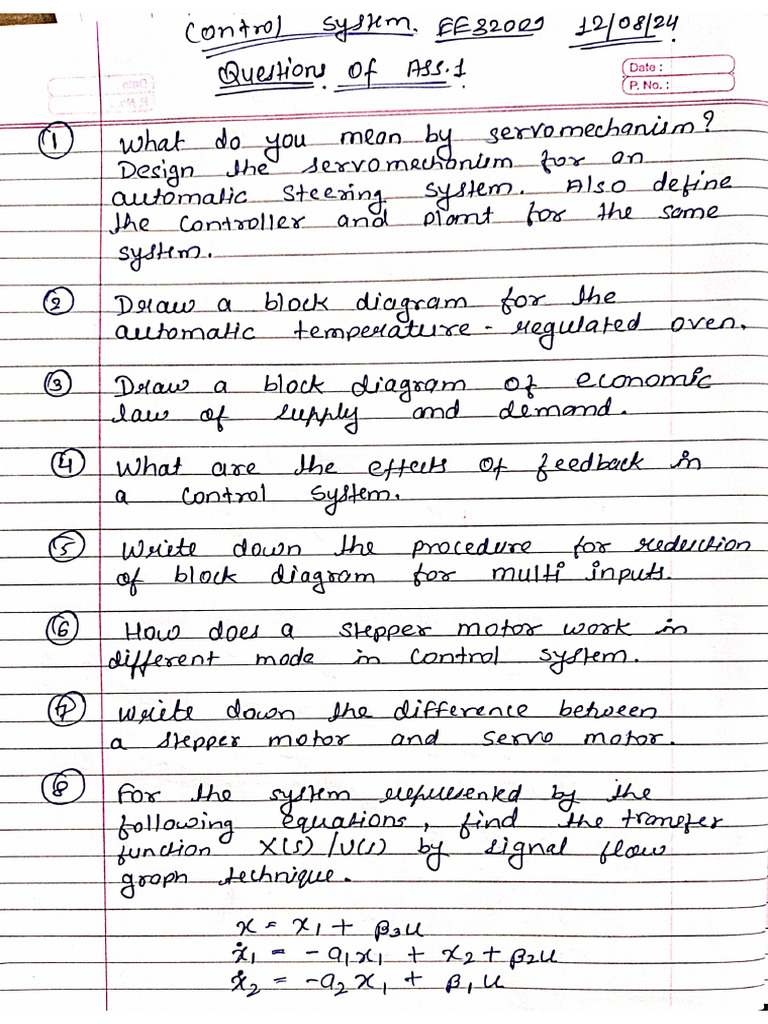 Control System. EE32009 12/08/24
Questions of Ass.1
Date :
P. No. :
① What do you mean by servomechanism?
Design the servomechanism for an
automatic steering system. Also define
the controller and plant for the same
system.
② Draw a block diagram for the
automatic temperature-regulated oven.
③ Draw a block diagram of economic
law of supply and demand.
④ What are the effects of feedback in
a control system.
⑤ Write down the procedure for reduction
of block diagram for multi inputs.
⑥ How does a stepper motor work in
different mode in control system.
⑦ Write down the difference between
a stepper motor and servo motor.
⑧ For the system represented by the
following equations, find the transfer
function X(s)/U(s) by signal flow
graph technique.
x = x₁ + β₃u
ẋ₁ = -a₁x₁ + x₂ + β₂u
ẋ₂ = -a₂x₁ + β₁u